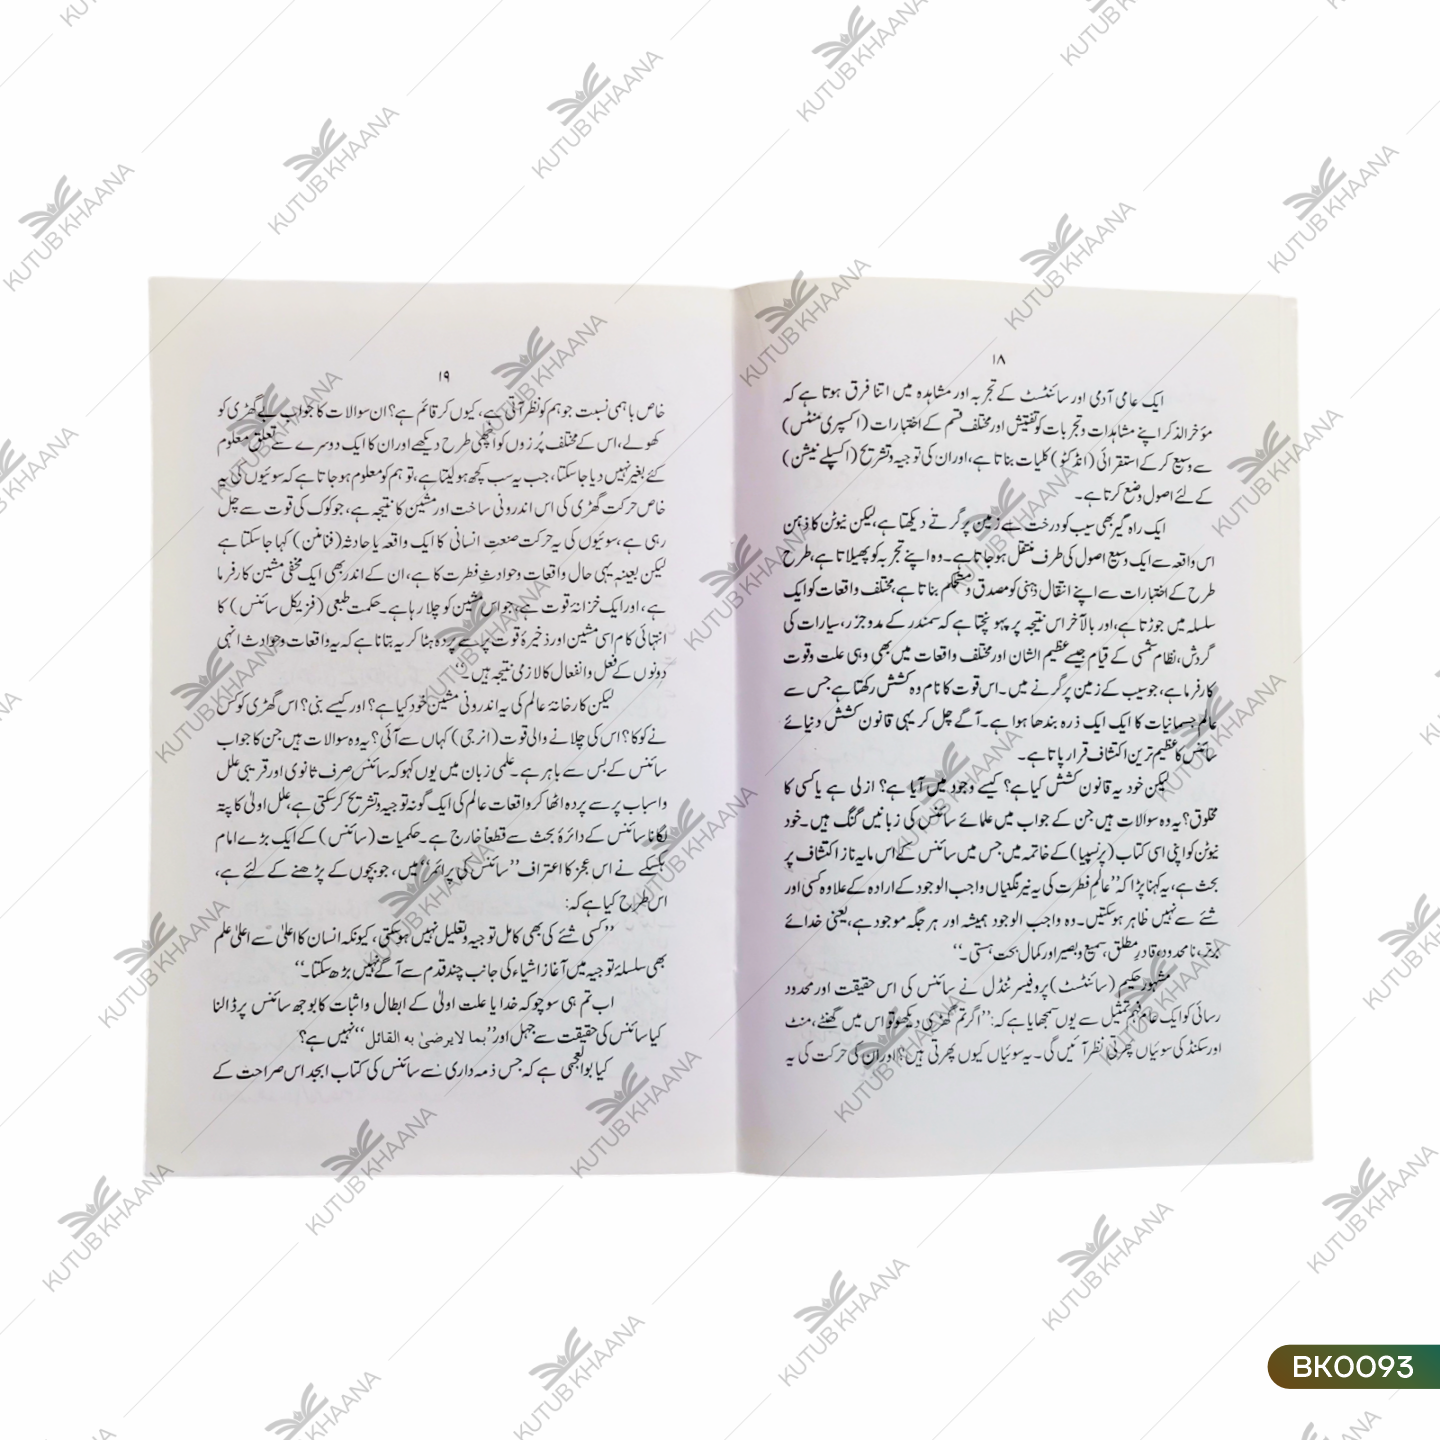 ۱۸
ایک عامی آدمی اور سائنٹسٹ کے تجربہ اور مشاہدہ میں اتنا فرق ہوتا ہے کہ
مؤخر الذکر اپنے مشاہدات و تجربات کو تفتیش اور مختلف قسم کے اختبارات (اکسپری منٹس)
سے وسیع کر کے استقرائی (انڈکٹو) کلیات بناتا ہے، اور ان کی توجیہ و تشریح (اکسپلے نیشن)
کے لئے اصول وضع کرتا ہے۔
ایک راہ گیر بھی سیب کو درخت سے زمین پر گرتے دیکھتا ہے، لیکن نیوٹن کا ذہن
اس واقعہ سے ایک وسیع اصول کی طرف منتقل ہو جاتا ہے۔ وہ اپنے تجربہ کو پھیلاتا ہے، طرح
طرح کے اختبارات سے اپنے انتقال ذہنی کو مصدق و مستحکم بناتا ہے، مختلف واقعات کو ایک
سلسلہ میں جوڑتا ہے، اور بالآخر اس نتیجہ پر پہونچتا ہے کہ سمندر کے مد و جزر، سیارات کی
گردش، نظام شمسی کے قیام جیسے عظیم الشان اور مختلف واقعات میں بھی وہی علت و قوت
کارفرما ہے، جو سیب کے زمین پر گرنے میں۔ اس قوت کا نام وہ کشش رکھتا ہے جس سے
عالم جسمانیات کا ایک ایک ذرہ بندھا ہوا ہے۔ آگے چل کر یہی قانون کشش دنیائے
سائنس کا عظیم ترین اکتشاف قرار پاتا ہے۔
لیکن خود یہ قانون کشش کیا ہے؟ کیسے وجود میں آیا ہے؟ ازلی ہے یا کسی کا
مخلوق؟ یہ وہ سوالات ہیں جن کے جواب میں علمائے سائنس کی زبانیں گنگ ہیں۔ خود
نیوٹن کو اپنی اسی کتاب (پرنسپیا) کے خاتمہ میں جس میں سائنس کے اس مایہ ناز اکتشاف پر
بحث ہے، یہ کہنا پڑا کہ ”عالم فطرت کی یہ نیرنگیاں واجب الوجود کے ارادہ کے علاوہ کسی اور
شئے سے نہیں ظاہر ہو سکتیں۔ وہ واجب الوجود ہمیشہ اور ہر جگہ موجود ہے، یعنی خدائے
برتر، نامحدود، قادرِ مطلق، سمیع و بصیر اور کمال بحت ہستی۔“
مشہور حکیم (سائنٹسٹ) پروفیسر ٹنڈل نے سائنس کی اس حقیقت اور محدود
رسائی کو ایک عام فہم تمثیل سے یوں سمجھایا ہے کہ: ”اگر تم گھڑی دیکھو تو اس میں گھنٹے، منٹ
اور سکنڈ کی سوئیاں پھرتی نظر آئیں گی۔ یہ سوئیاں کیوں پھرتی ہیں؟ اور ان کی حرکت کی یہ
۱۹
خاص باہمی نسبت جو ہم کو نظر آتی ہے، کیوں کر قائم ہے؟ ان سوالات کا جواب بے گھڑی کو
کھولے، اس کے مختلف پُرزوں کو اچھی طرح دیکھے اور ان کا ایک دوسرے سے تعلق معلوم
کئے بغیر نہیں دیا جا سکتا، جب یہ سب کچھ ہو لیتا ہے، تو ہم کو معلوم ہو جاتا ہے کہ سوئیوں کی یہ
خاص حرکت گھڑی کی اس اندرونی ساخت اور مشین کا نتیجہ ہے، جو کوک کی قوت سے چل
رہی ہے، سوئیوں کی یہ حرکت صنعتِ انسانی کا ایک واقعہ یا حادثہ (فنامنن) کہا جا سکتا ہے
لیکن بعینہ یہی حال واقعات و حوادثِ فطرت کا ہے، ان کے اندر بھی ایک مخفی مشین کارفرما
ہے، اور ایک خزانۂ قوت ہے، جو اس مشین کو چلا رہا ہے۔ حکمت طبعی (فزیکل سائنس) کا
انتہائی کام اسی مشین اور ذخیرۂ قوت پر سے پردہ ہٹا کر یہ بتانا ہے کہ یہ واقعات و حوادث انہی
دونوں کے فعل و انفعال کا لازمی نتیجہ ہیں۔“
لیکن کارخانۂ عالم کی یہ اندرونی مشین خود کیا ہے؟ اور کیسے بنی؟ اس گھڑی کو کس
نے کوکا؟ اس کی چلانے والی قوت (انرجی) کہاں سے آئی؟ یہ وہ سوالات ہیں جن کا جواب
سائنس کے بس سے باہر ہے۔ علمی زبان میں یوں کہو کہ سائنس صرف ثانوی اور قریبی علل
و اسباب پر سے پردہ اٹھا کر واقعات عالم کی ایک گونہ توجیہ و تشریح کر سکتی ہے، علل اولیٰ کا پتہ
لگانا سائنس کے دائرۂ بحث سے قطعاً خارج ہے۔ حکمیات (سائنس) کے ایک بڑے امام
ہکسلے نے اس عجز کا اعتراف ”سائنس کی پرائمر“ میں، جو بچوں کے پڑھنے کے لئے ہے،
اس طرح کیا ہے کہ:
”کسی شئے کی بھی کامل توجیہ و تعلیل نہیں ہو سکتی، کیونکہ انسان کا اعلیٰ سے اعلیٰ علم
بھی سلسلۂ توجیہ میں آغاز اشیاء کی جانب چند قدم سے آگے نہیں بڑھ سکتا۔“
اب تم ہی سوچو کہ خدا یا علت اولیٰ کے ابطال و اثبات کا بوجھ سائنس پر ڈالنا
کیا سائنس کی حقیقت سے جہل اور ”بما لا یرضیٰ به القائل“ نہیں ہے؟
کیا بوالعجبی ہے کہ جس ذمہ داری سے سائنس کی کتاب ابجد اس صراحت کے
BK0093
KUTUB KHAANA